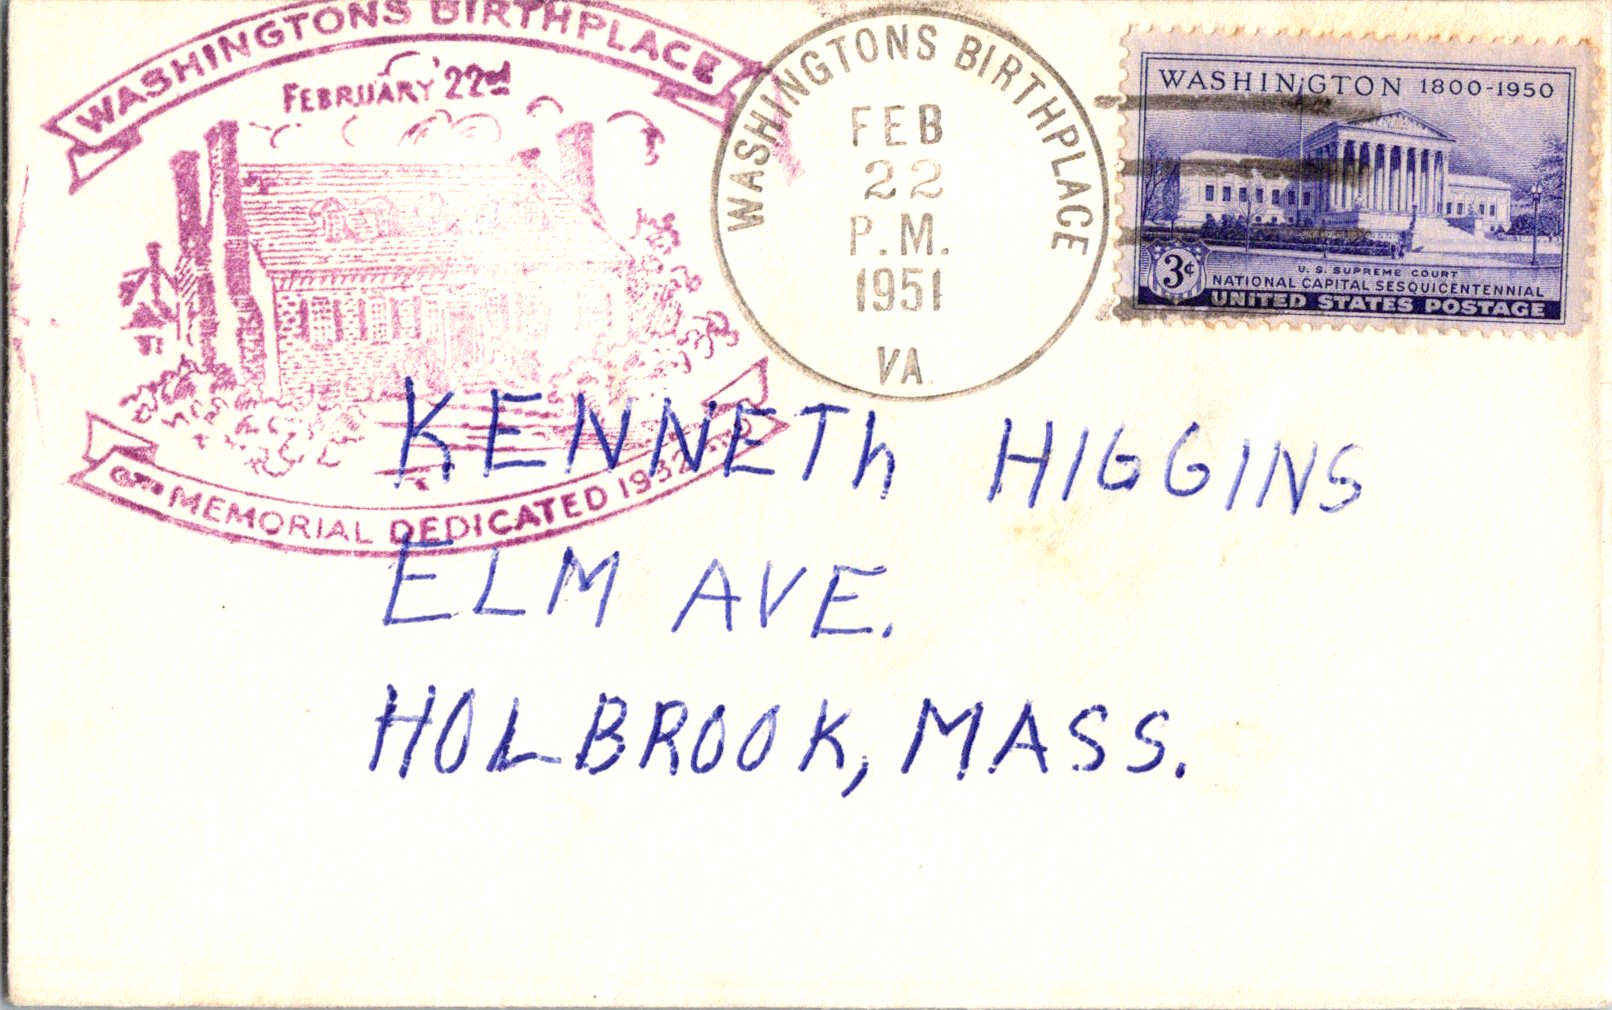 WASHINGTONS BIRTHPLACE
FEBRUARY 22nd
MEMORIAL DEDICATED 1932
WASHINGTONS BIRTHPLACE
FEB
22
P.M.
1951
VA.
WASHINGTON 1800-1950
3¢
U. S. SUPREME COURT
NATIONAL CAPITAL SESQUICENTENNIAL
UNITED STATES POSTAGE
KENNETh HIGGINS
ELM AVE.
HOLBROOK, MASS.